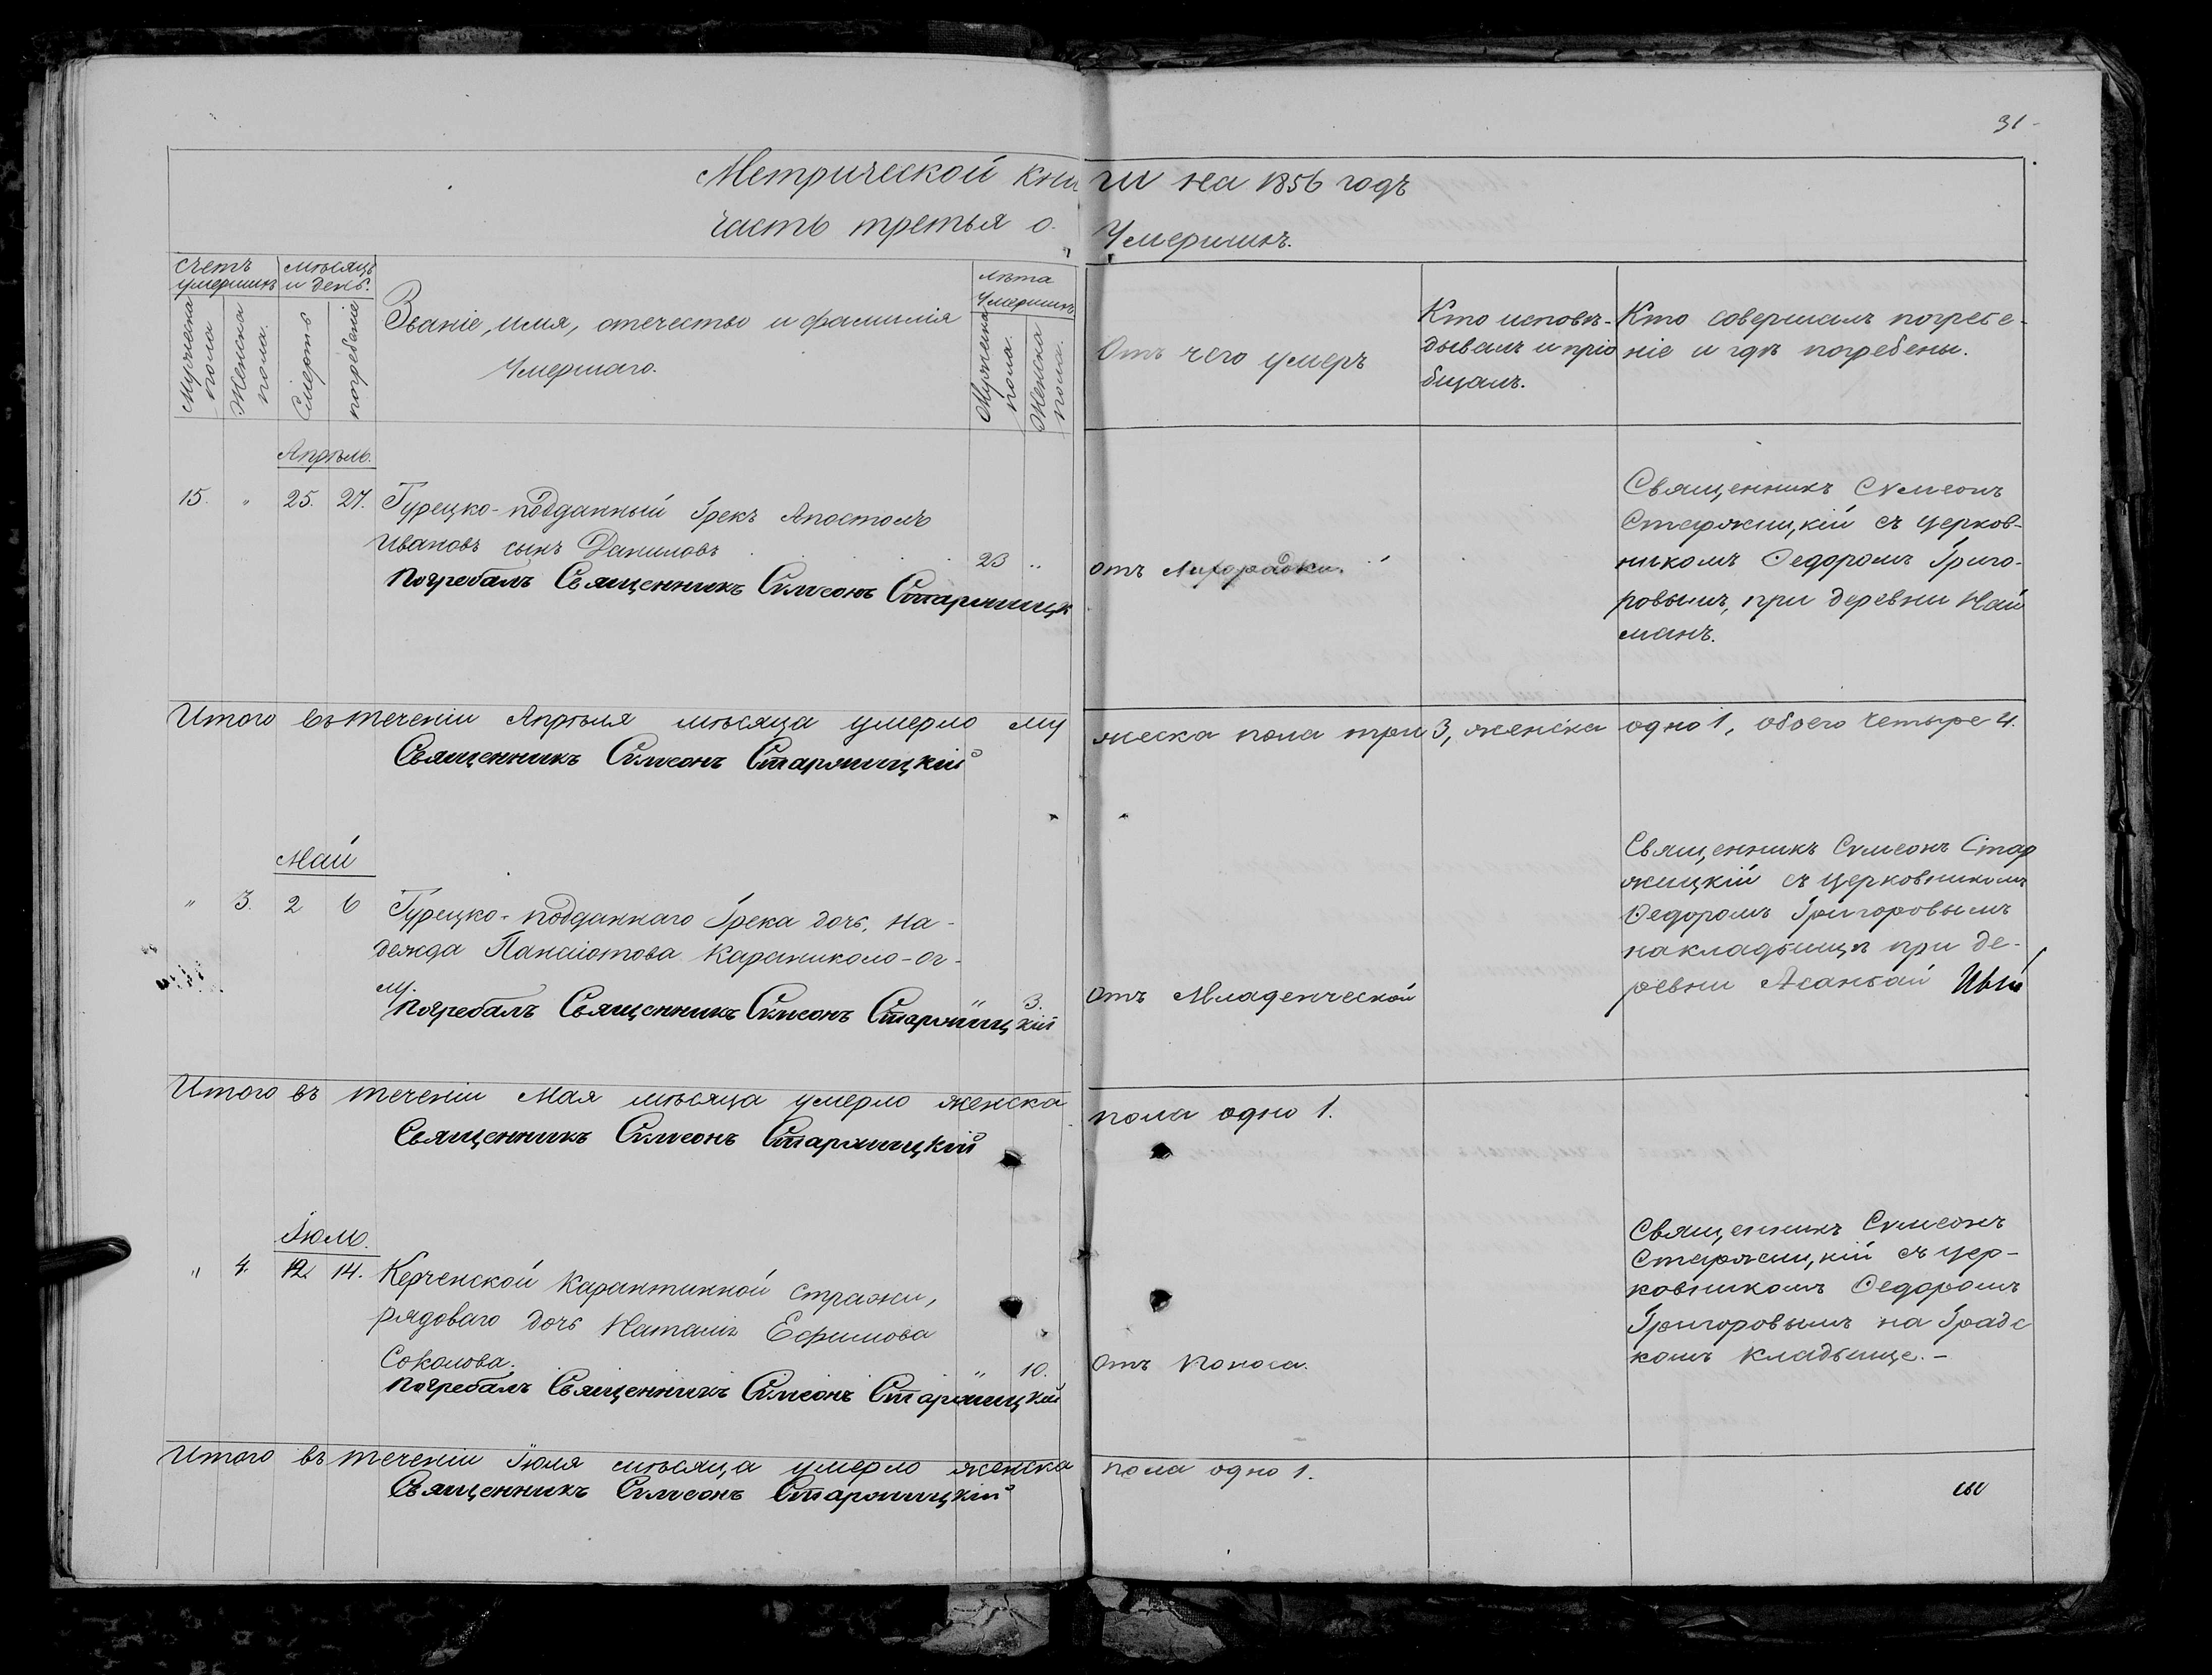 31
Метрической книги на 1856 годъ
часть третья о Умершихъ.
Счетъ умершихъ
Мужеска пола
Женска пола.
мѣсяцъ и день.
Смерть
погребеніе
Званіе, имя, отчество и фамилія
Умершаго.
лѣта Умершихъ
Мужеска пола.
Женска пола.
Отъ чего умеръ
Кто исповѣ-
дывалъ и пріо
бщалъ.
Кто совершалъ погребе-
ніе и гдѣ погребены.
Апрѣль.
15. " 25. 27. Турецко-подданный Грекъ Апостолъ
Ивановъ сынъ Даниловъ 23 "
Погребалъ Священникъ Симеонъ Старжицк
отъ Лихорадки.
Священникъ Сѵмеонъ
Старжицкій съ церков-
никомъ Ѳедоромъ Григо-
ровымъ, при деревни Най
манъ.
Итого въ теченіи Апрѣля мѣсяца умерло мужеска пола три 3, женска одно 1, обоего четыре 4.
Священникъ Симеонъ Старжицкій
Май
" 3. 2 6 Турецко-подданнаго Грека дочь, На-
дежда Панаіотова Караниколо-ог-
" 3.
Погребалъ Священникъ Симеонъ Старжицкій
отъ Младенческой
Священникъ Сѵмеонъ Стар
жицкій съ церковникомъ
Ѳедоромъ Григоровымъ
на кладбищѣ при де-
ревни Асанбай
Итого въ теченіи Мая мѣсяца умерло женска пола одно 1.
Священникъ Симеонъ Старжицкій
Іюль.
" 4. 12 14. Керченской Карантинной Стражи,
рядоваго дочь Наталія Ефимова
Соколова. " 10.
Погребалъ Священникъ Симеонъ Старжицкій
отъ Поноса.
Священникъ Сѵмеонъ
Старжицкій съ цер-
ковникомъ Ѳедоромъ
Григоровымъ на Градс
комъ кладбище.-
Итого въ теченіи Іюля мѣсяца умерло женска пола одно 1.
Священникъ Симеонъ Старжицкій